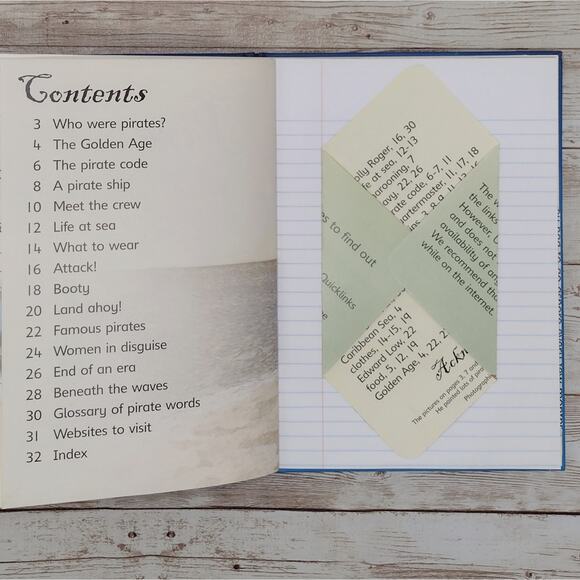 Contents
3 Who were pirates?
4 The Golden Age
6 The pirate code
8 A pirate ship
10 Meet the crew
12 Life at sea
14 What to wear
16 Attack!
18 Booty
20 Land ahoy!
22 Famous pirates
24 Women in disguise
26 End of an era
28 Beneath the waves
30 Glossary of pirate words
31 Websites to visit
32 Index
olly Roger, 16, 30
fe at sea, 12-13
arooning, 7
avy, 22, 26
rate code, 6-7, 11
artermaster, 11, 17, 18
es to find out
Quicklinks
The w
the links
However, U
and does not
availability of any
We recommend tha
while on the internet.
Caribbean Sea, 4
clothes, 14-15, 19
Edward Low, 22
food, 5, 12, 19
Golden Age, 4, 22, 2
Ackn
The pictures on pages 3, 7 and
He painted lots of pira
Photographi